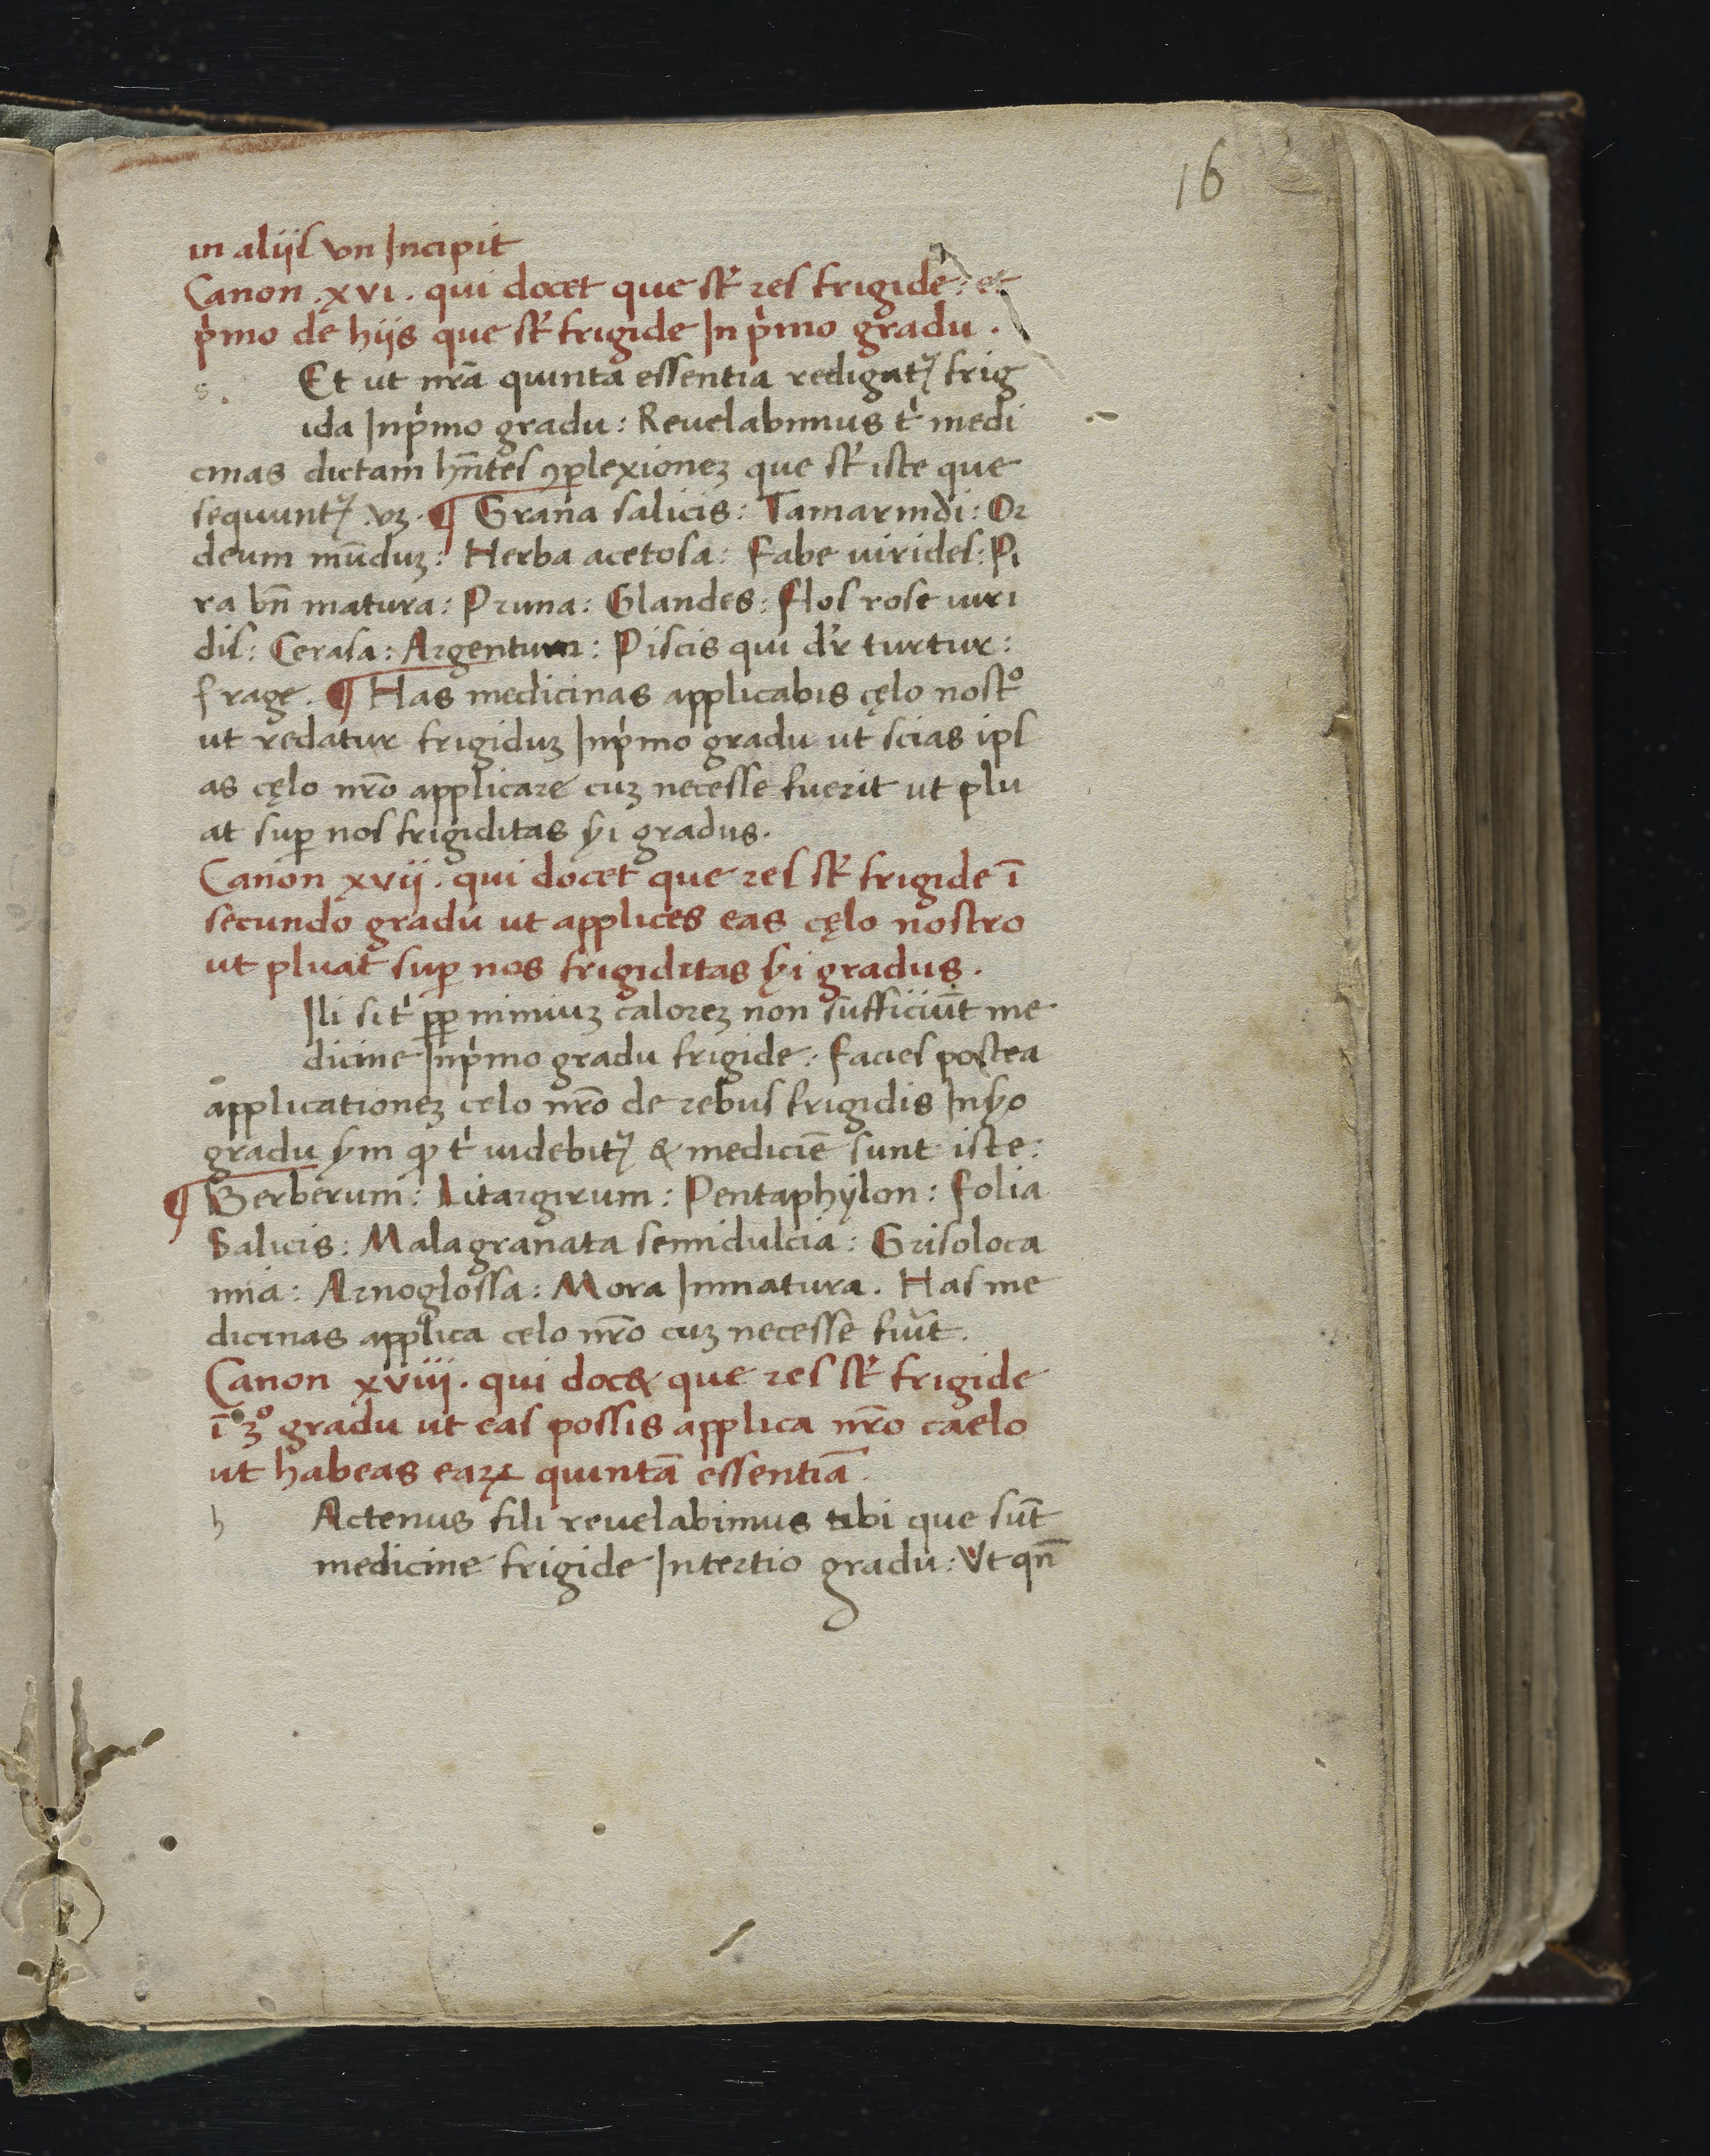 16
in aliis vn Incipit
Canon .xvi. qui docet que st̃ res frigide: et
p̾mo de hijs que st̃ frigide In p̾mo gradu.
s. Et ut nr̃a quinta essentia redigat᷑ frig
ida Inp̾mo gradu: Reuelabimus t̾ medi
cinas dictam hñtes ꝯplexionez que st̃ iste que
sequunt᷑ .vz. ¶ Grana salicis: Tamarindi: Or
deum mūduz: Herba acetosa: Fabe uirides: Pi
ra bñ matura: Pruna: Glandes: Flos rose uiri
dis: Cerasa: Argentum: Piscis qui dr̃ turtur:
frage. ¶ Has medicinas applicabis cęlo nostº
ut redatur frigiduz Inp̾mo gradu ut scias ips
as cęlo nr̃o applicare cuz necesse fuerit ut plu
at suꝑ nos frigiditas sꝫi gradus.
Canon xvij. qui docet que res st̃ frigide ī
secundo gradu ut applices eas cęlo nostro
ut pluat suꝑ nos frigiditas sꝫi gradus.
Ili si t̾ ꝓꝑ nimiuz calorez non sufficiūt me
dicine Inp̾mo gradu frigide: Facies postea
applicationez celo nr̃o de rebus frigidis In sꝫo
gradu sꝫm ꝙ t̾ uidebit᷑ & mediciē sunt iste:
¶ Berberum: Litargirum: Pentaphÿlon: Folia
Salicis: Mala granata semidulcia: Grisoloca
nna: Arnoglossa: Mora Inmatura. Has me
dicinas applica celo nr̃o cuz necesse fuĩt.
Canon xviij. qui doc& que res st̃ frigide
ī 3º gradu ut eas possis applica nr̃o caelo
ut habeas eaꝝ quintā essentiā.
h Actenus fili reuelabimus tibi que sūt
medicine frigide Intertio gradu: Vt qñ